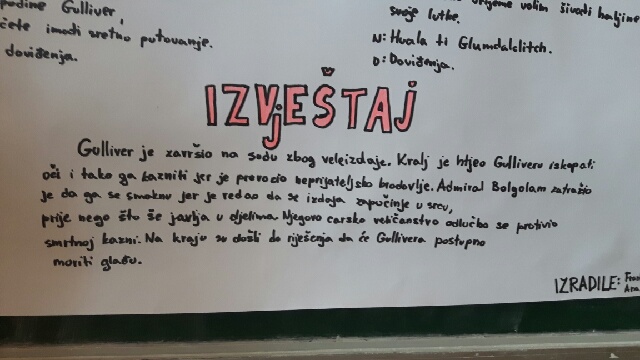 godine Gulliver,
ćete imati sretno putovanje.
doviđenja.
vrijeme volim šivati haljine
svoje lutke.
N: Hvala ti Glumdalclitch.
D: Doviđenja.
IZVjEŠTAJ
Gulliver je završio na sudu zbog veleizdaje. Kralj je htjeo Gulliveru iskopati
oči i tako ga kazniti jer je preročio neprijateljsko brodovlje. Admiral Bolgolam zatražio
je da ga se smaknu jer je redao da se izdaja započinje u srcu,
prije nego što še javlja u djelima. Njegovo carsko veličanstvo odlučbo se protivio
smrtnoj kazni. Na kraju su došli do riješenja da će Gullivera postupno
moriti glađu.
IZRADILE: